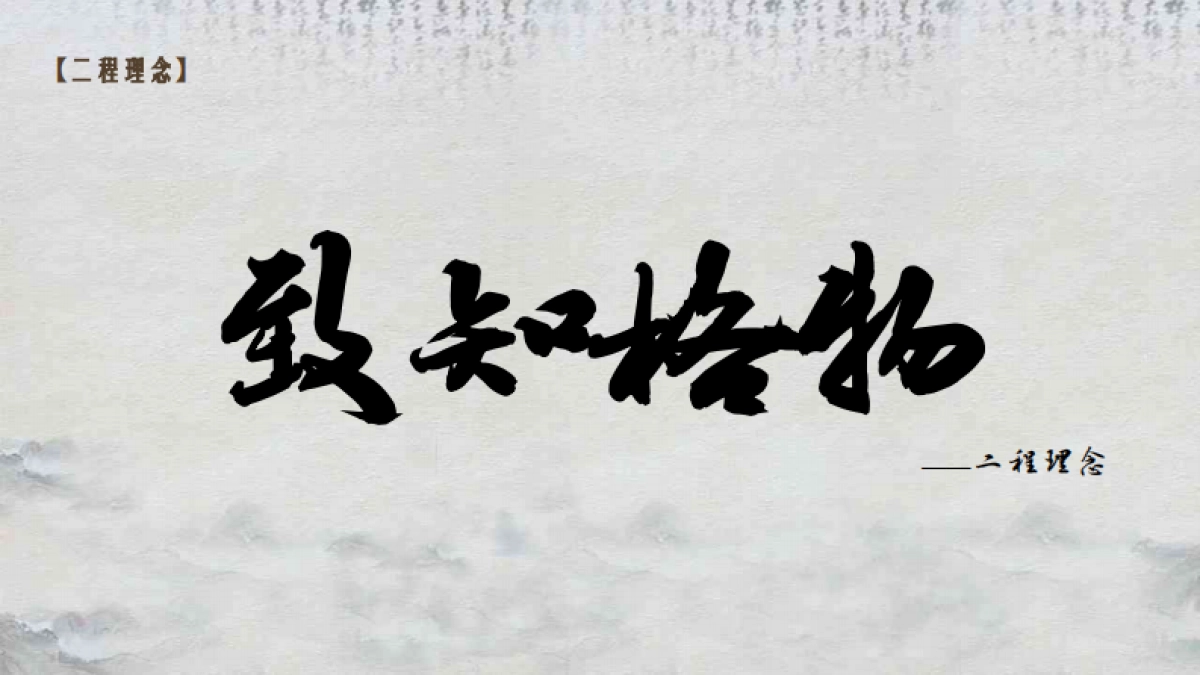 【二程理念】
致知格物
——二程理念